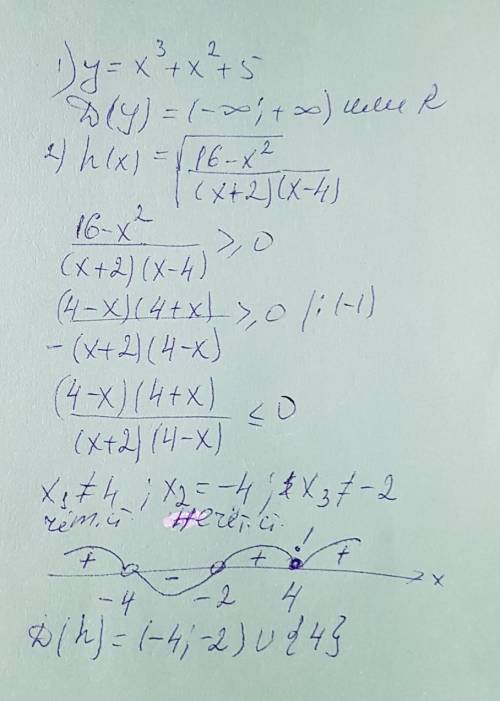 1) y = x³ + x² + 5
D(y) = (-∞; +∞) или R
2) h(x) = √((16-x²)/((x+2)(x-4)))
(16-x²)/((x+2)(x-4)) ≥ 0
(4-x)(4+x)/(-(x+2)(4-x)) ≥ 0 /:(-1)
(4-x)(4+x)/((x+2)(4-x)) ≤ 0
x₁ ≠ 4 ; x₂ = -4 ; x₃ ≠ -2
чёт.ст. нечёт.ст.
+ - + ! +
-4 -2 4 x
D(h) = (-4; -2) ∪ {4}